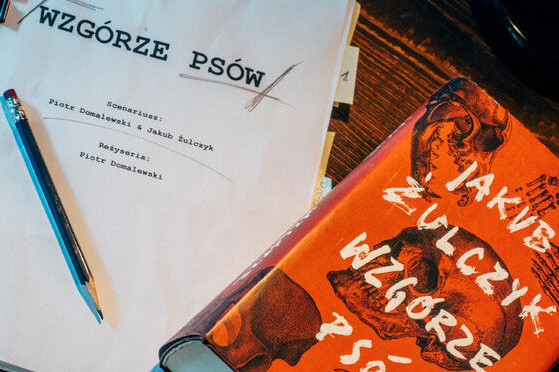 WZGÓRZE PSÓW
Scenariusz:
Piotr Domalewski & Jakub Żulczyk
Reżyseria:
Piotr Domalewski
1
JAKUB
ŻULCZYK
WZGÓRZE
PSÓ